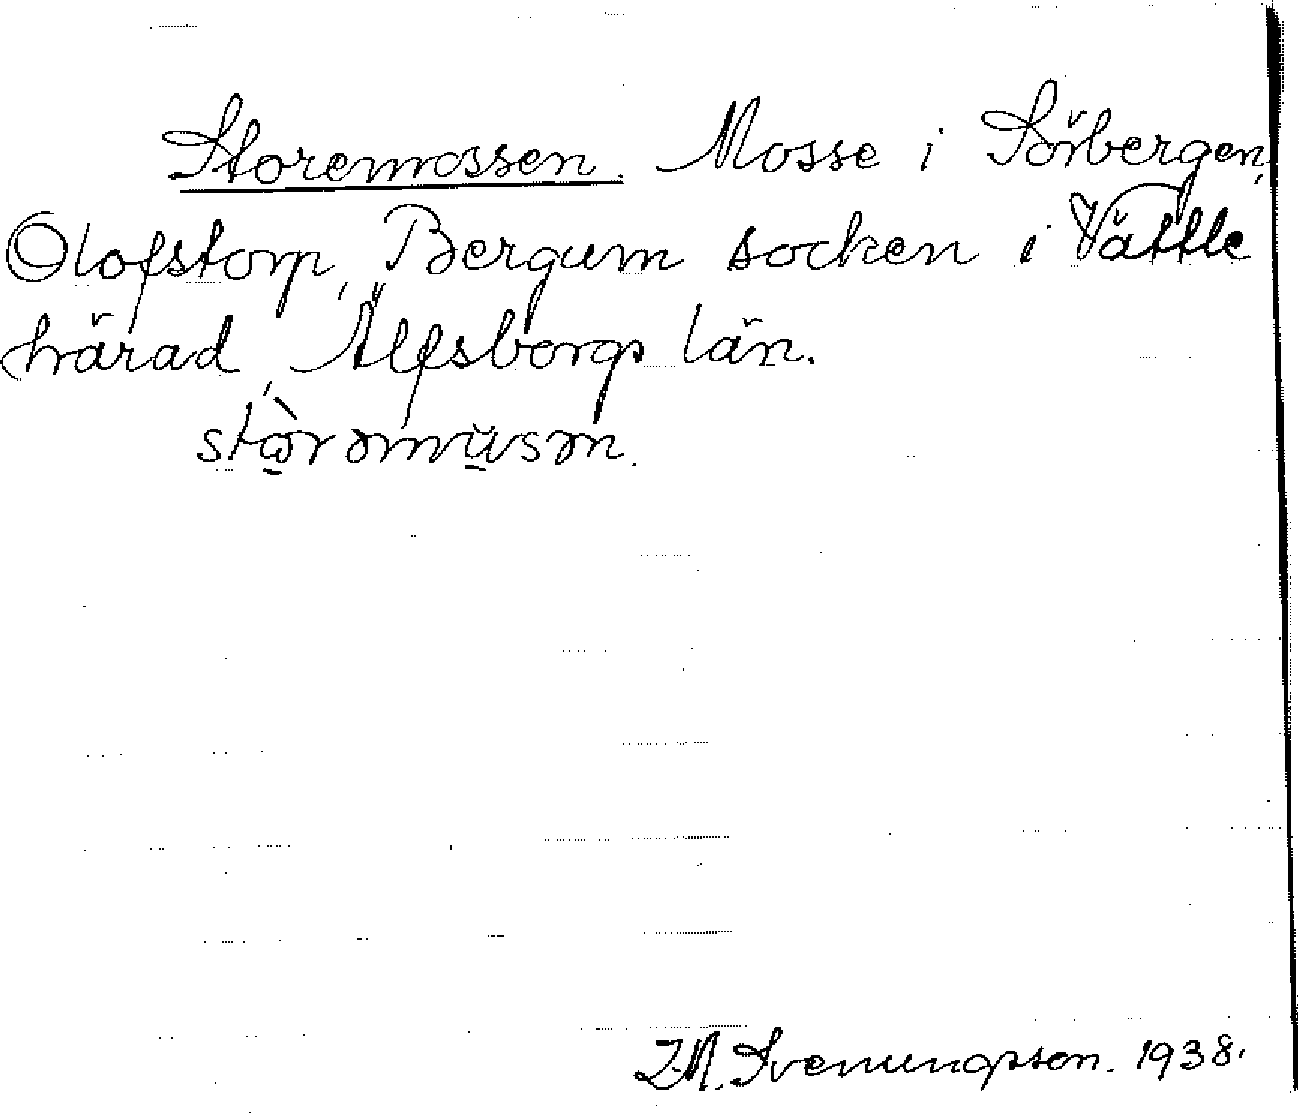 Storemossen. Mosse i Sörbergen,
Olofstorp, Bergum socken i Vättle
härad, Älfsborgs län.
stὼrəmωsən.
I.M. Svenungsson. 1938.